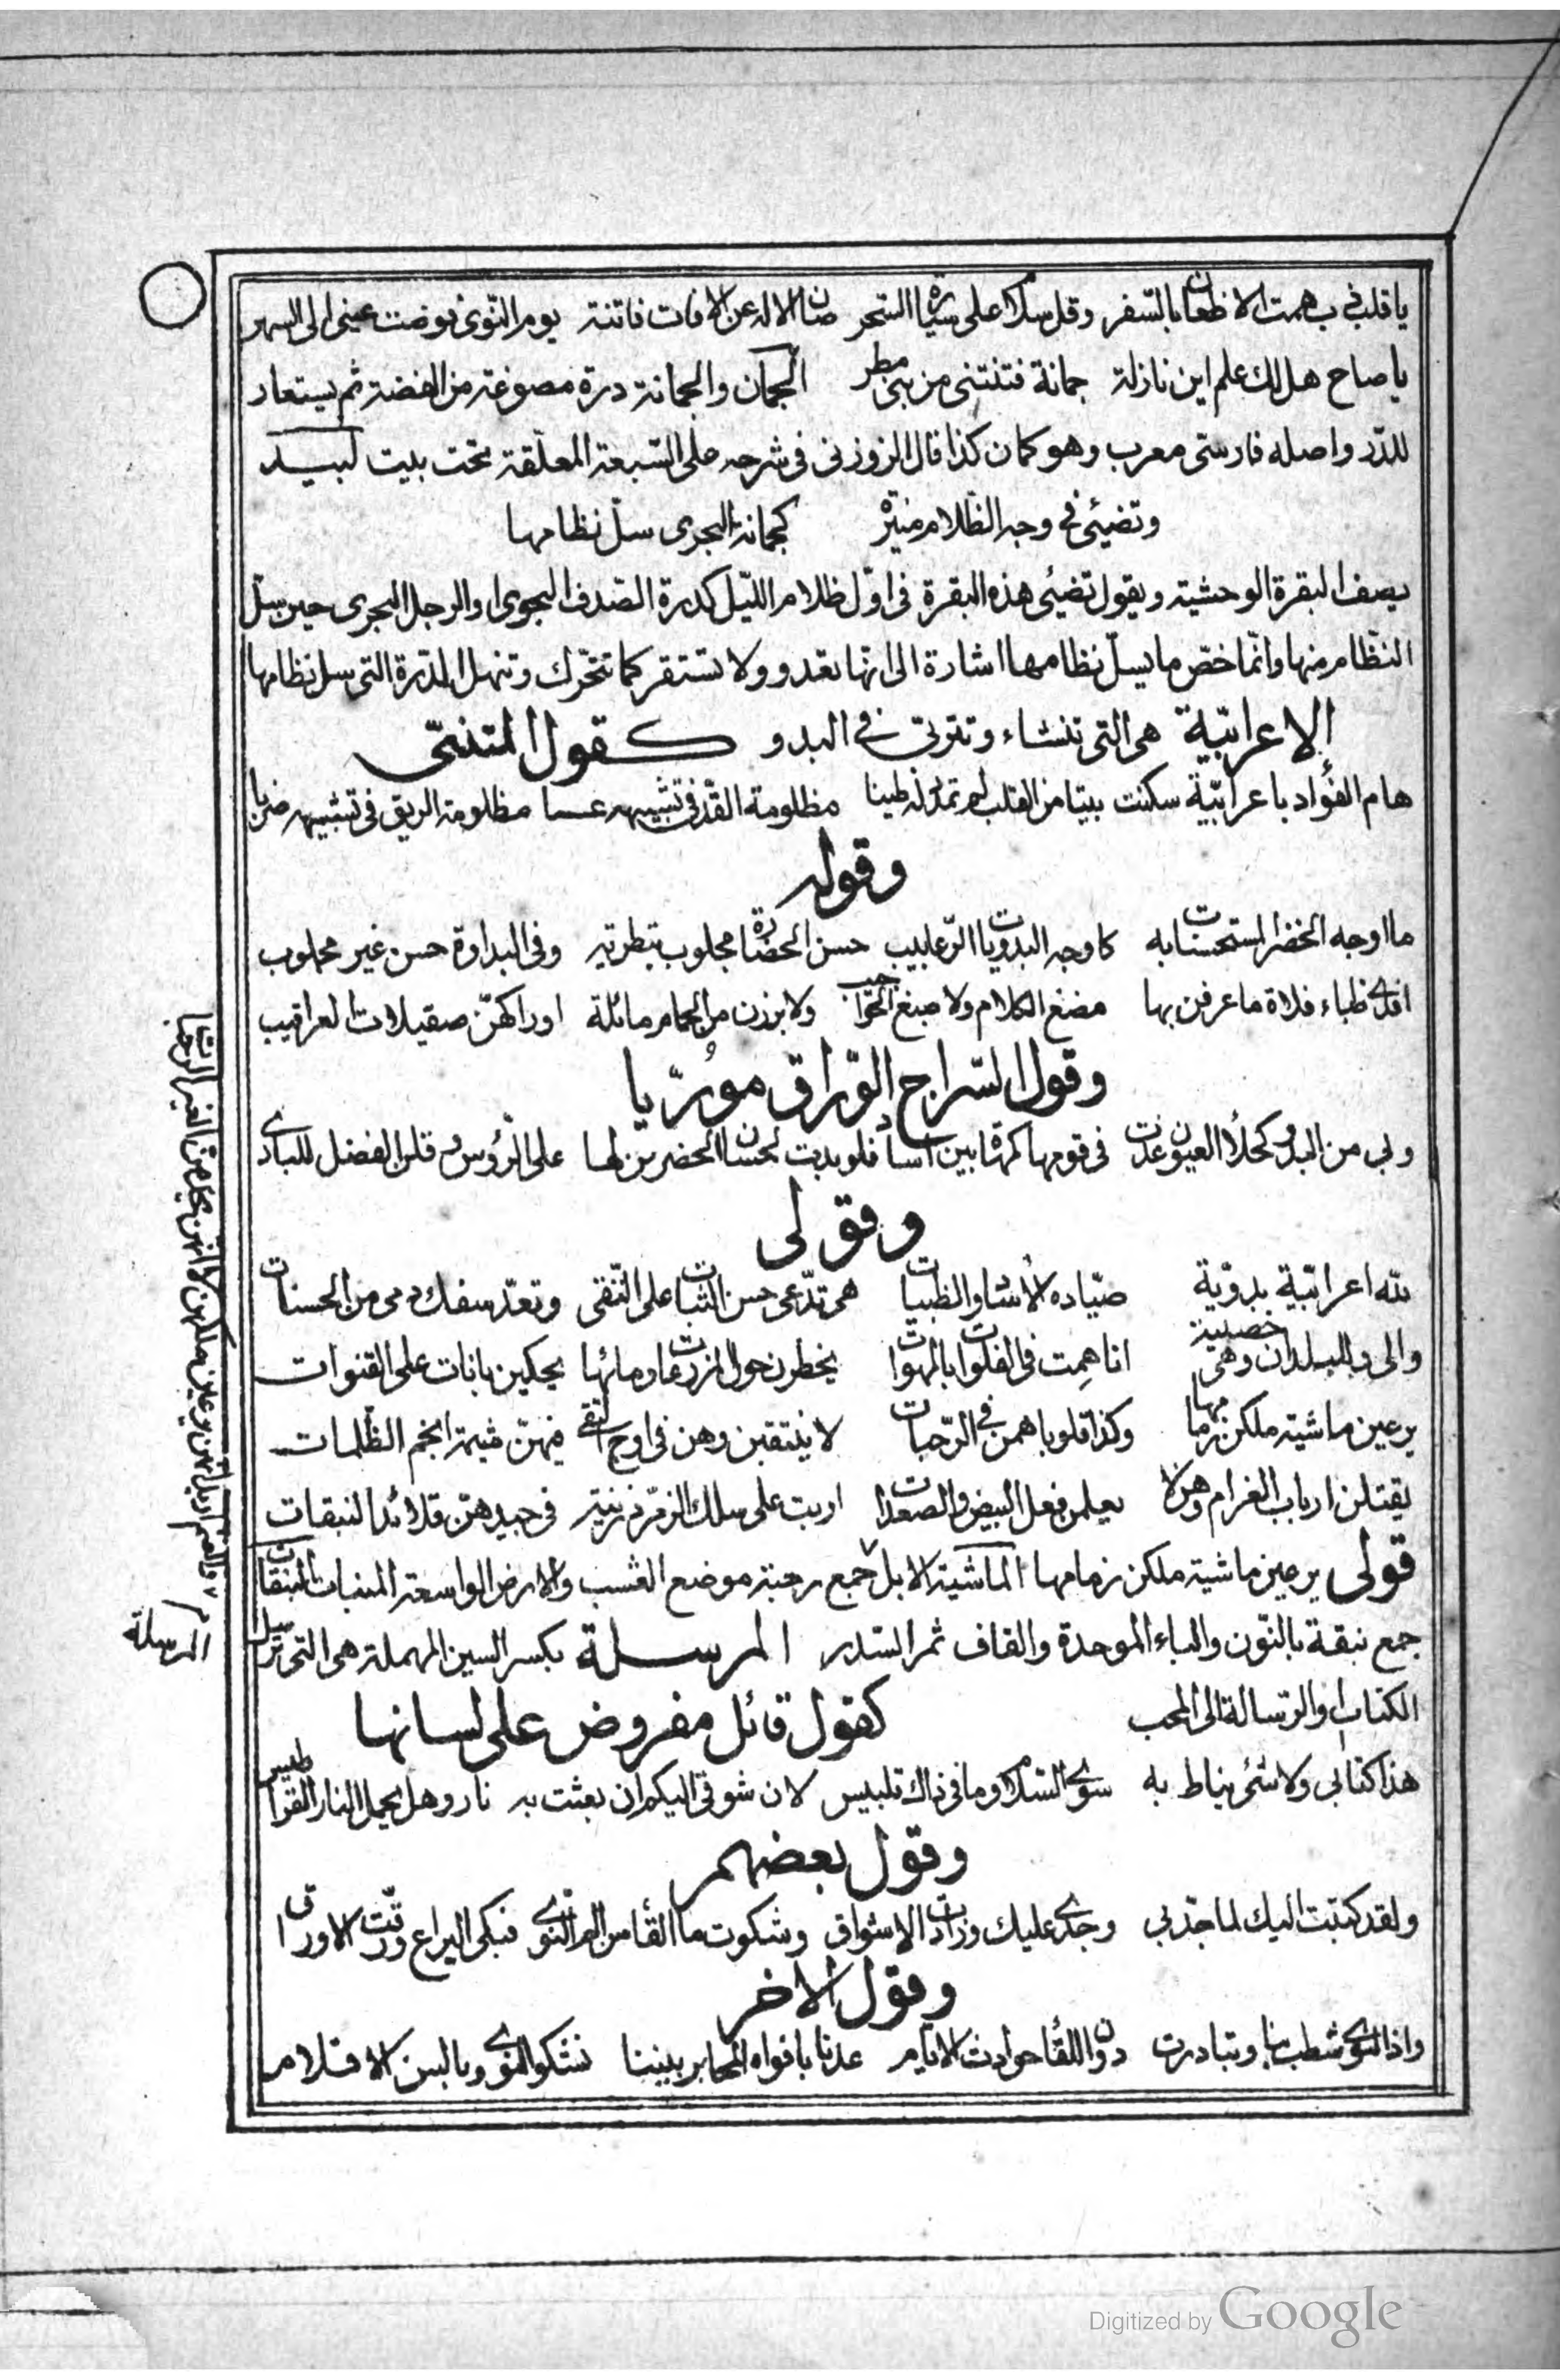 يا قلب ذب همت الاظعان بالسفر وقل سلام على سيارة السحر صان الاله عن الافات فاتنة يوم النوى فوضت عيني الى السهر
يا صاح هل لك علم اين نازلة جمانة فتنتني من بني مطر الجمان والجمانة درة مصوغة من الفضة ثم يستعار
للدر واصله فارسي معرب وهو كمان كذا قال الزوزني في شرحه على السبعة المعلقة تحت بيت لبيد
وتضيئ في وجه الظلام منيرة كجمانة البحري سل نظامها
يصف البقرة الوحشية ويقول تضيئ هذه البقرة في اول ظلام الليل كدرة الصدف البحري او الرجل البحري حين سل
النظام منها وانما خص ما يسل نظامها اشارة الى انها تعدو ولا تستقر كما تتحرك وتنهل الدرة التي سل نظامها
الاعرابية هي التي تنشاء وتتربى في البدو كقول المتنبي
هام الفؤاد باعرابية سكنت بيتا من القلب لم تمدد له طنبا مظلومة القد في تشبيهه غصنا مظلومة الريق في تشبيهه ضربا
وقوله
ما اوجه الحضر المستحسنات به كاوجه البدويات الرعابيب حسن الحضارة مجلوب بتطرية وفي البداوة حسن غير مجلوب
افدي ظباء فلاة ما عرفن بها مضغ الكلام ولا صبغ الحواجيب ولا برزن من الحمام مائلة اوراكهن صقيلات العراقيب
وقول السراج الوراق موريا
وبي من البدو كحلاء العيون غدت في قومها كمهاة بين اساد فلو بدت لحسان الحضر من لها على الرؤس وقلن الفضل للبادي
وقولي
لله اعرابية بدوية صياده الاشاوالظبيات هي تدعي حسن الثبات على التقى وتعد سفك دمي من الحسنات
والى وبالبلدان وهي خصيبة انا همت في الفلوات بالمهوات يخطرن حول المزرعات ومائها يحكين بانات على القنوات
يرعين ماشية ملكن زمامها وكذا قلوبا همن في الرحبات لا ينتقبن وهن في اوج النقى فهن شيمة انجم الظلمات
يقتلن ارباب الغرام وهن لا يعلمن فعل البيض والصعدات اربت على سلك الزمرد زينة في جيدهن قلائد النبقات
قولي يرعين ماشية ملكن زمامها الماشية الابل جمع رحبة موضع العشب والارض الواسعة المنبات النبقات
جمع نبقة بالنون والباء الموحدة والقاف ثمر السدر المرسلة بكسر السين المهملة هي التي ترسل
الكتاب والرسالة الى المحب كقول قائل مفروض على لسانها
هذا كتابي ولا شئ يناط به سوى السلام وما في ذاك تلبيس لان شوقي اليكم ان بعثت به نار وهل يحمل النار القراطيس
وقول بعضهم
ولقد كتبت اليك لما جد بي وجدي عليك وزادت الاشواق وشكوت ما القاه من الم النوى فبكى اليراع ورقت الاوراق
وقول الاخر
واذا النوى شطت بنا وتبادرت دون اللقا حوادث الايام عدنا بافواه المحابر بيننا نشكو النوى وبالسن الاقلام
المرسلة
Digitized by Google